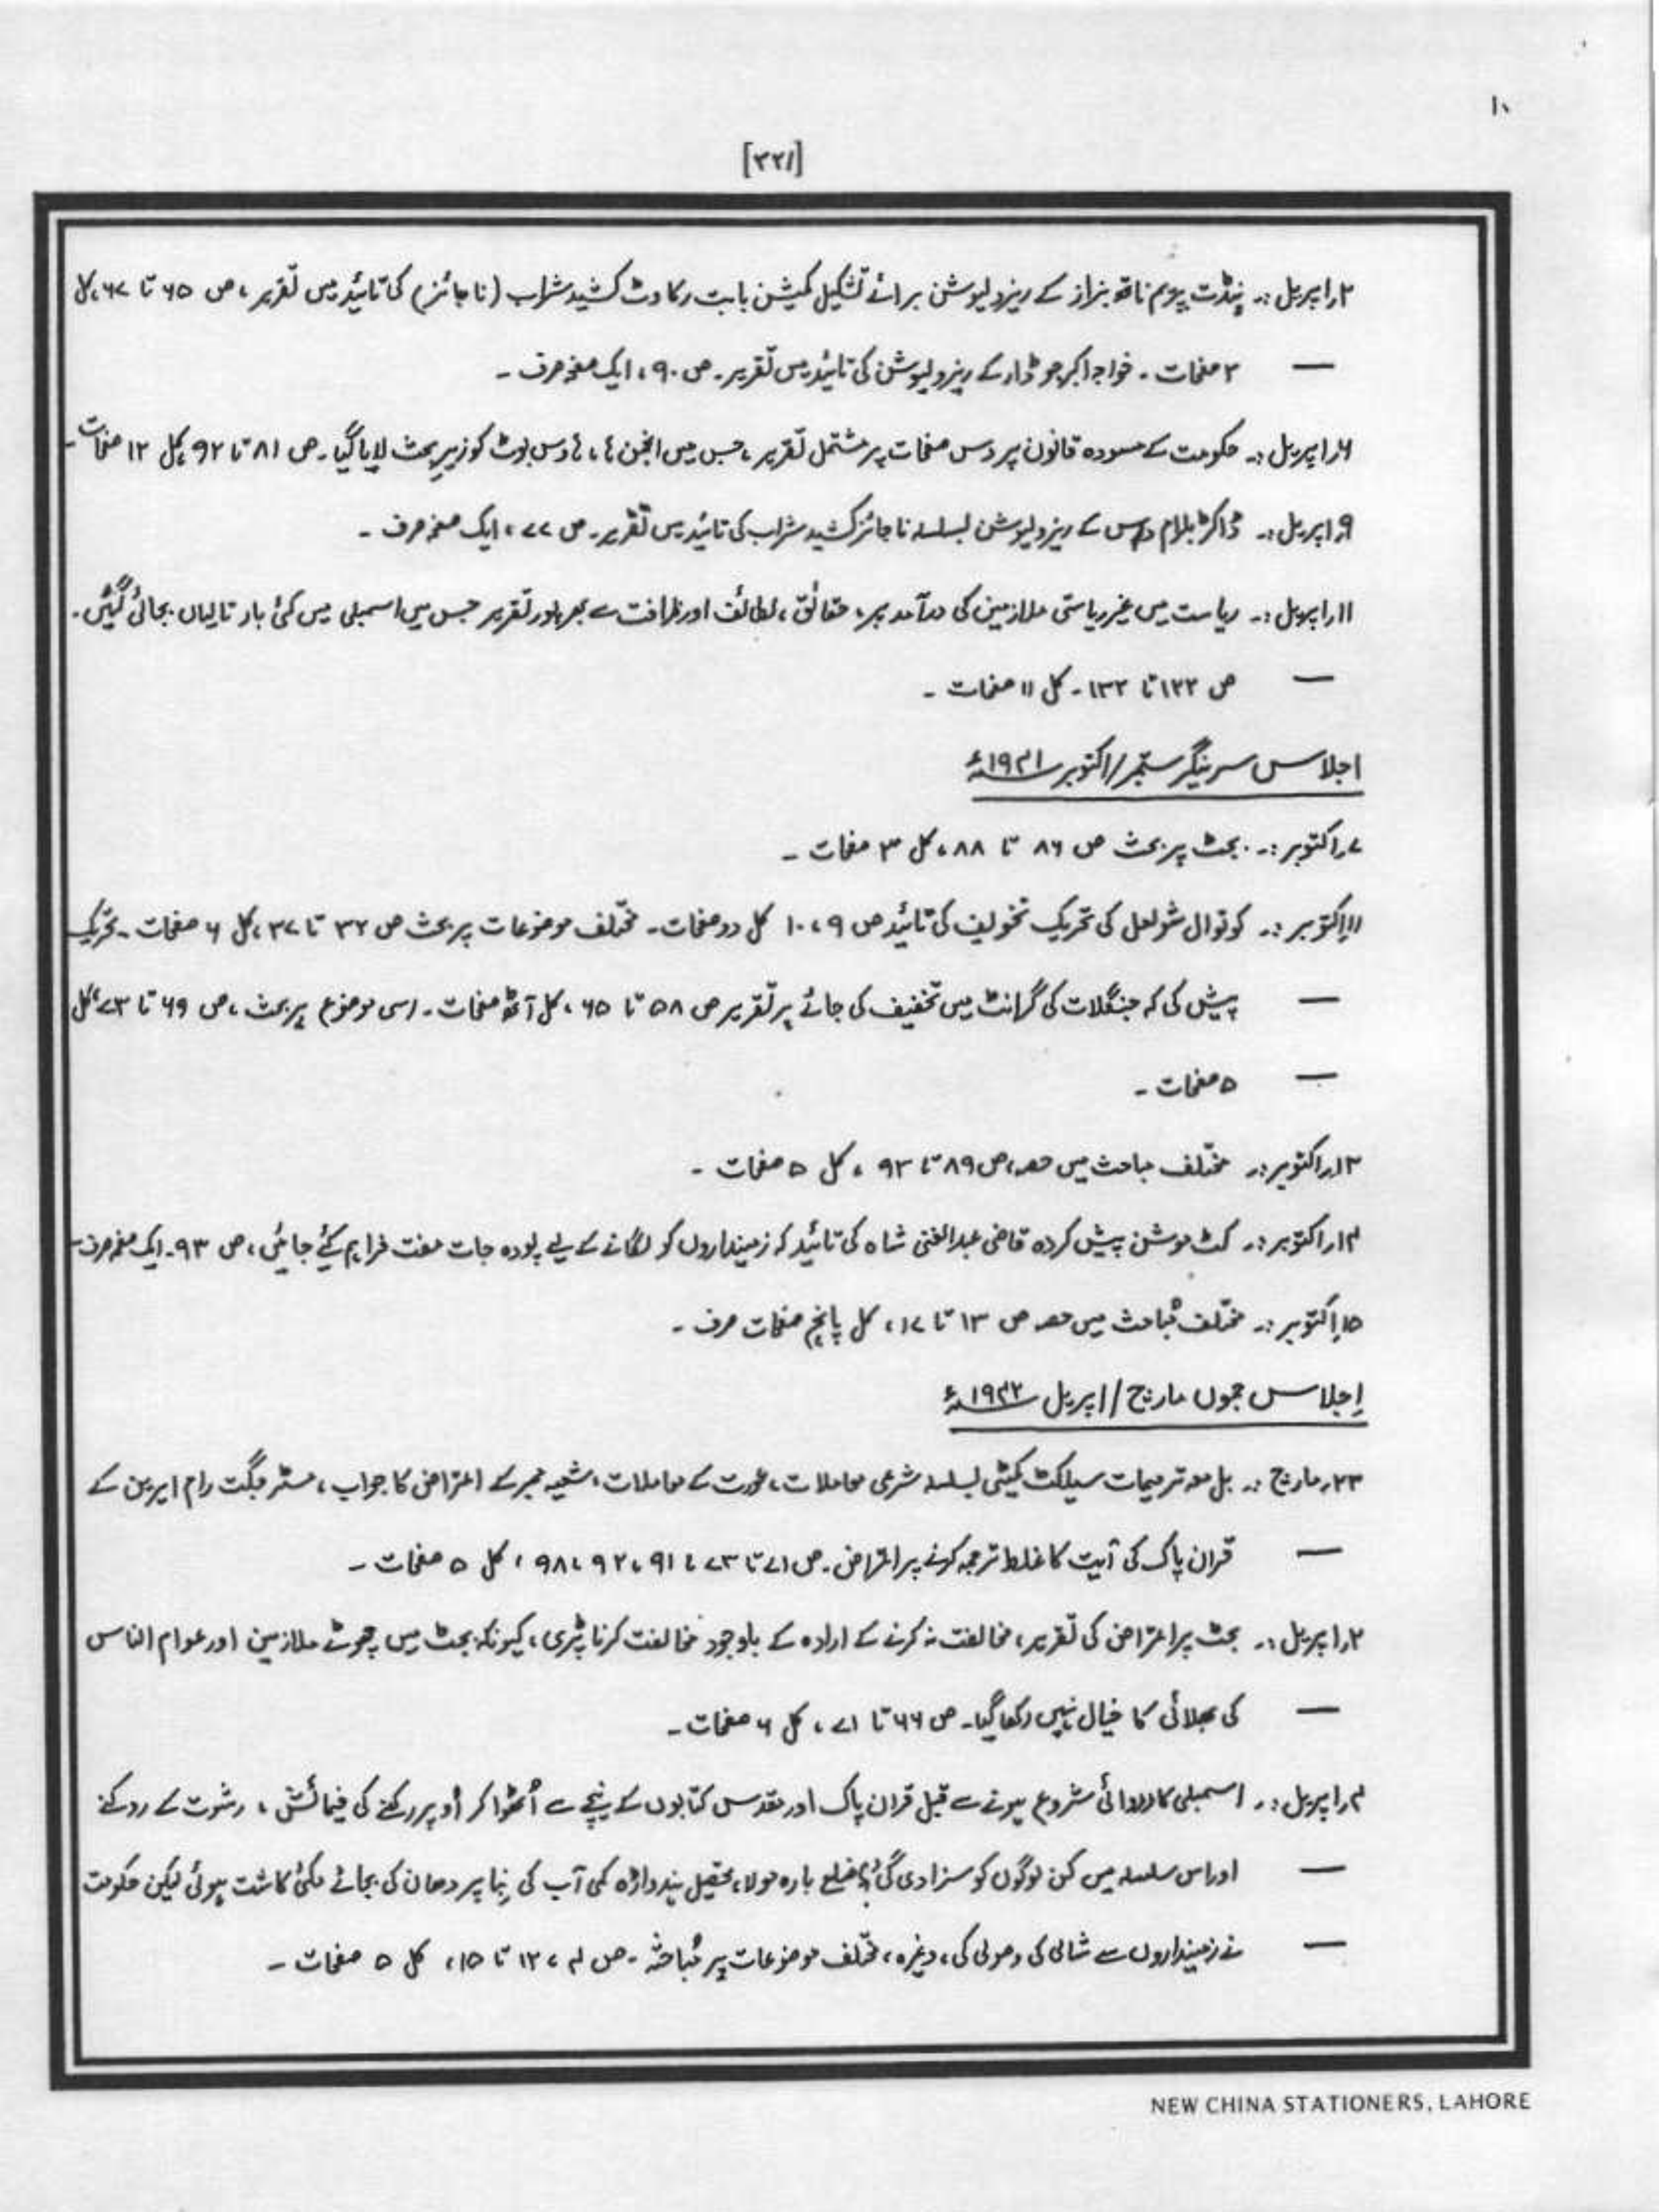 ۱۰
[۳۲۱]
۲؍اپریل :۔ پنڈت پریم ناتھ بزاز کے ریزولیوشن برائے تشکیل کمیشن بابت رکاوٹ کشید شراب (ناجائز) کی تائید میں تقریر، ص ۶۵ تا ۶۷، کل
— ۳ صفحات ۔ خواجہ اکبر جو ڈار کے ریزولیوشن کی تائید میں تقریر۔ ص ۹۰، ایک صفحہ صرف ۔
؍اپریل :۔ حکومت کے مسودہ قانون پر دس صفحات پر مشتمل تقریر، جس میں انجن ہائے، ہاؤس بوٹ کو زیرِ بحث لایا گیا۔ ص ۸۱ تا ۹۲، کل ۱۲ صفحات ۔
۹؍اپریل :۔ ڈاکٹر بلرام داس کے ریزولیوشن بسلسلہ ناجائز کشید شراب کی تائید میں تقریر۔ ص ۷۷، ایک صفحہ صرف ۔
۱۱؍اپریل :۔ ریاست میں غیر ریاستی ملازمین کی درآمد پر، حقائق، لطائف اور ظرافت سے بھرپور تقریر جس میں اسمبلی میں کئی بار تالیاں بجائی گئیں۔
— ص ۱۲۲ تا ۱۳۲ ۔ کل ۱۱ صفحات ۔
اجلاس سرینگر ستمبر/اکتوبر ۱۹۴۱ء
۷؍اکتوبر :۔ بجٹ پر بحث ص ۸۶ تا ۸۸، کل ۳ صفحات ۔
۱۱؍اکتوبر :۔ کوتوال شولعل کی تحریک تخویف کی تائید ص ۹، ۱۰ کل دو صفحات۔ مختلف موضوعات پر بحث ص ۳۲ تا ۳۷، کل ۶ صفحات ۔ تحریک
— پیش کی کہ جنگلات کی گرانٹ میں تخفیف کی جائے پر تقریر ص ۵۸ تا ۶۵، کل آٹھ صفحات۔ اسی موضوع پر بحث، ص ۶۹ تا ۷۳، کل
— ۵ صفحات ۔
۱۳؍اکتوبر :۔ مختلف مباحث میں حصہ، ص ۸۹ تا ۹۳، کل ۵ صفحات ۔
۱۴؍اکتوبر :۔ کٹ موشن پیش کردہ قاضی عبدالغنی شاہ کی تائید کہ زمینداروں کو لگانے کے لیے پودہ جات مفت فراہم کیے جائیں، ص ۹۳۔ ایک صفحہ صرف ۔
۱۵؍اکتوبر :۔ مختلف مُباحث میں حصہ ص ۱۳ تا ۱۷، کل پانچ صفحات صرف ۔
اِجلاس جموں مارچ / اپریل ۱۹۴۲ء
۲۳؍مارچ :۔ بل معہ ترمیمات سیلکٹ کمیٹی بسلسلہ شرعی معاملات، عورت کے معاملات، شعیہ ممبر کے اعتراض کا جواب، مسٹر جگت رام ایرین کے
— قران پاک کی آیت کا غلط ترجمہ کرنے پر اعتراض۔ ص ۷۱ تا ۷۳، ۹۱، ۹۲، ۹۸، کل ۵ صفحات ۔
۲؍اپریل :۔ بجٹ پر اعتراض کی تقریر، مخالفت نہ کرنے کے ارادہ کے باوجود مخالفت کرنا پڑی، کیونکہ بجٹ میں چھوٹے ملازمین اور عوام الناس
— کی بھلائی کا خیال نہیں رکھا گیا۔ ص ۶۶ تا ۷۱، کل ۶ صفحات ۔
۴؍اپریل :۔ اسمبلی کارروائی شروع ہونے سے قبل قران پاک اور مقدس کتابوں کے نیچے سے اُٹھوا کر اُوپر رکھنے کی فہمائش، رشوت کے روکنے
— اور اس سلسلہ میں کن لوگوں کو سزا دی گئی؟ ضلع بارہ مولا، تحصیل ہندواڑہ کمی آب کی بِنا پر دھان کی بجائے مکئی کاشت ہوئی لیکن حکومت
— نے زمینداروں سے شالی کی وصولی کی، وغیرہ، مختلف موضوعات پر مُباحثہ ۔ ص ۴، ۱۲ تا ۱۵، کل ۵ صفحات ۔
NEW CHINA STATIONERS, LAHORE